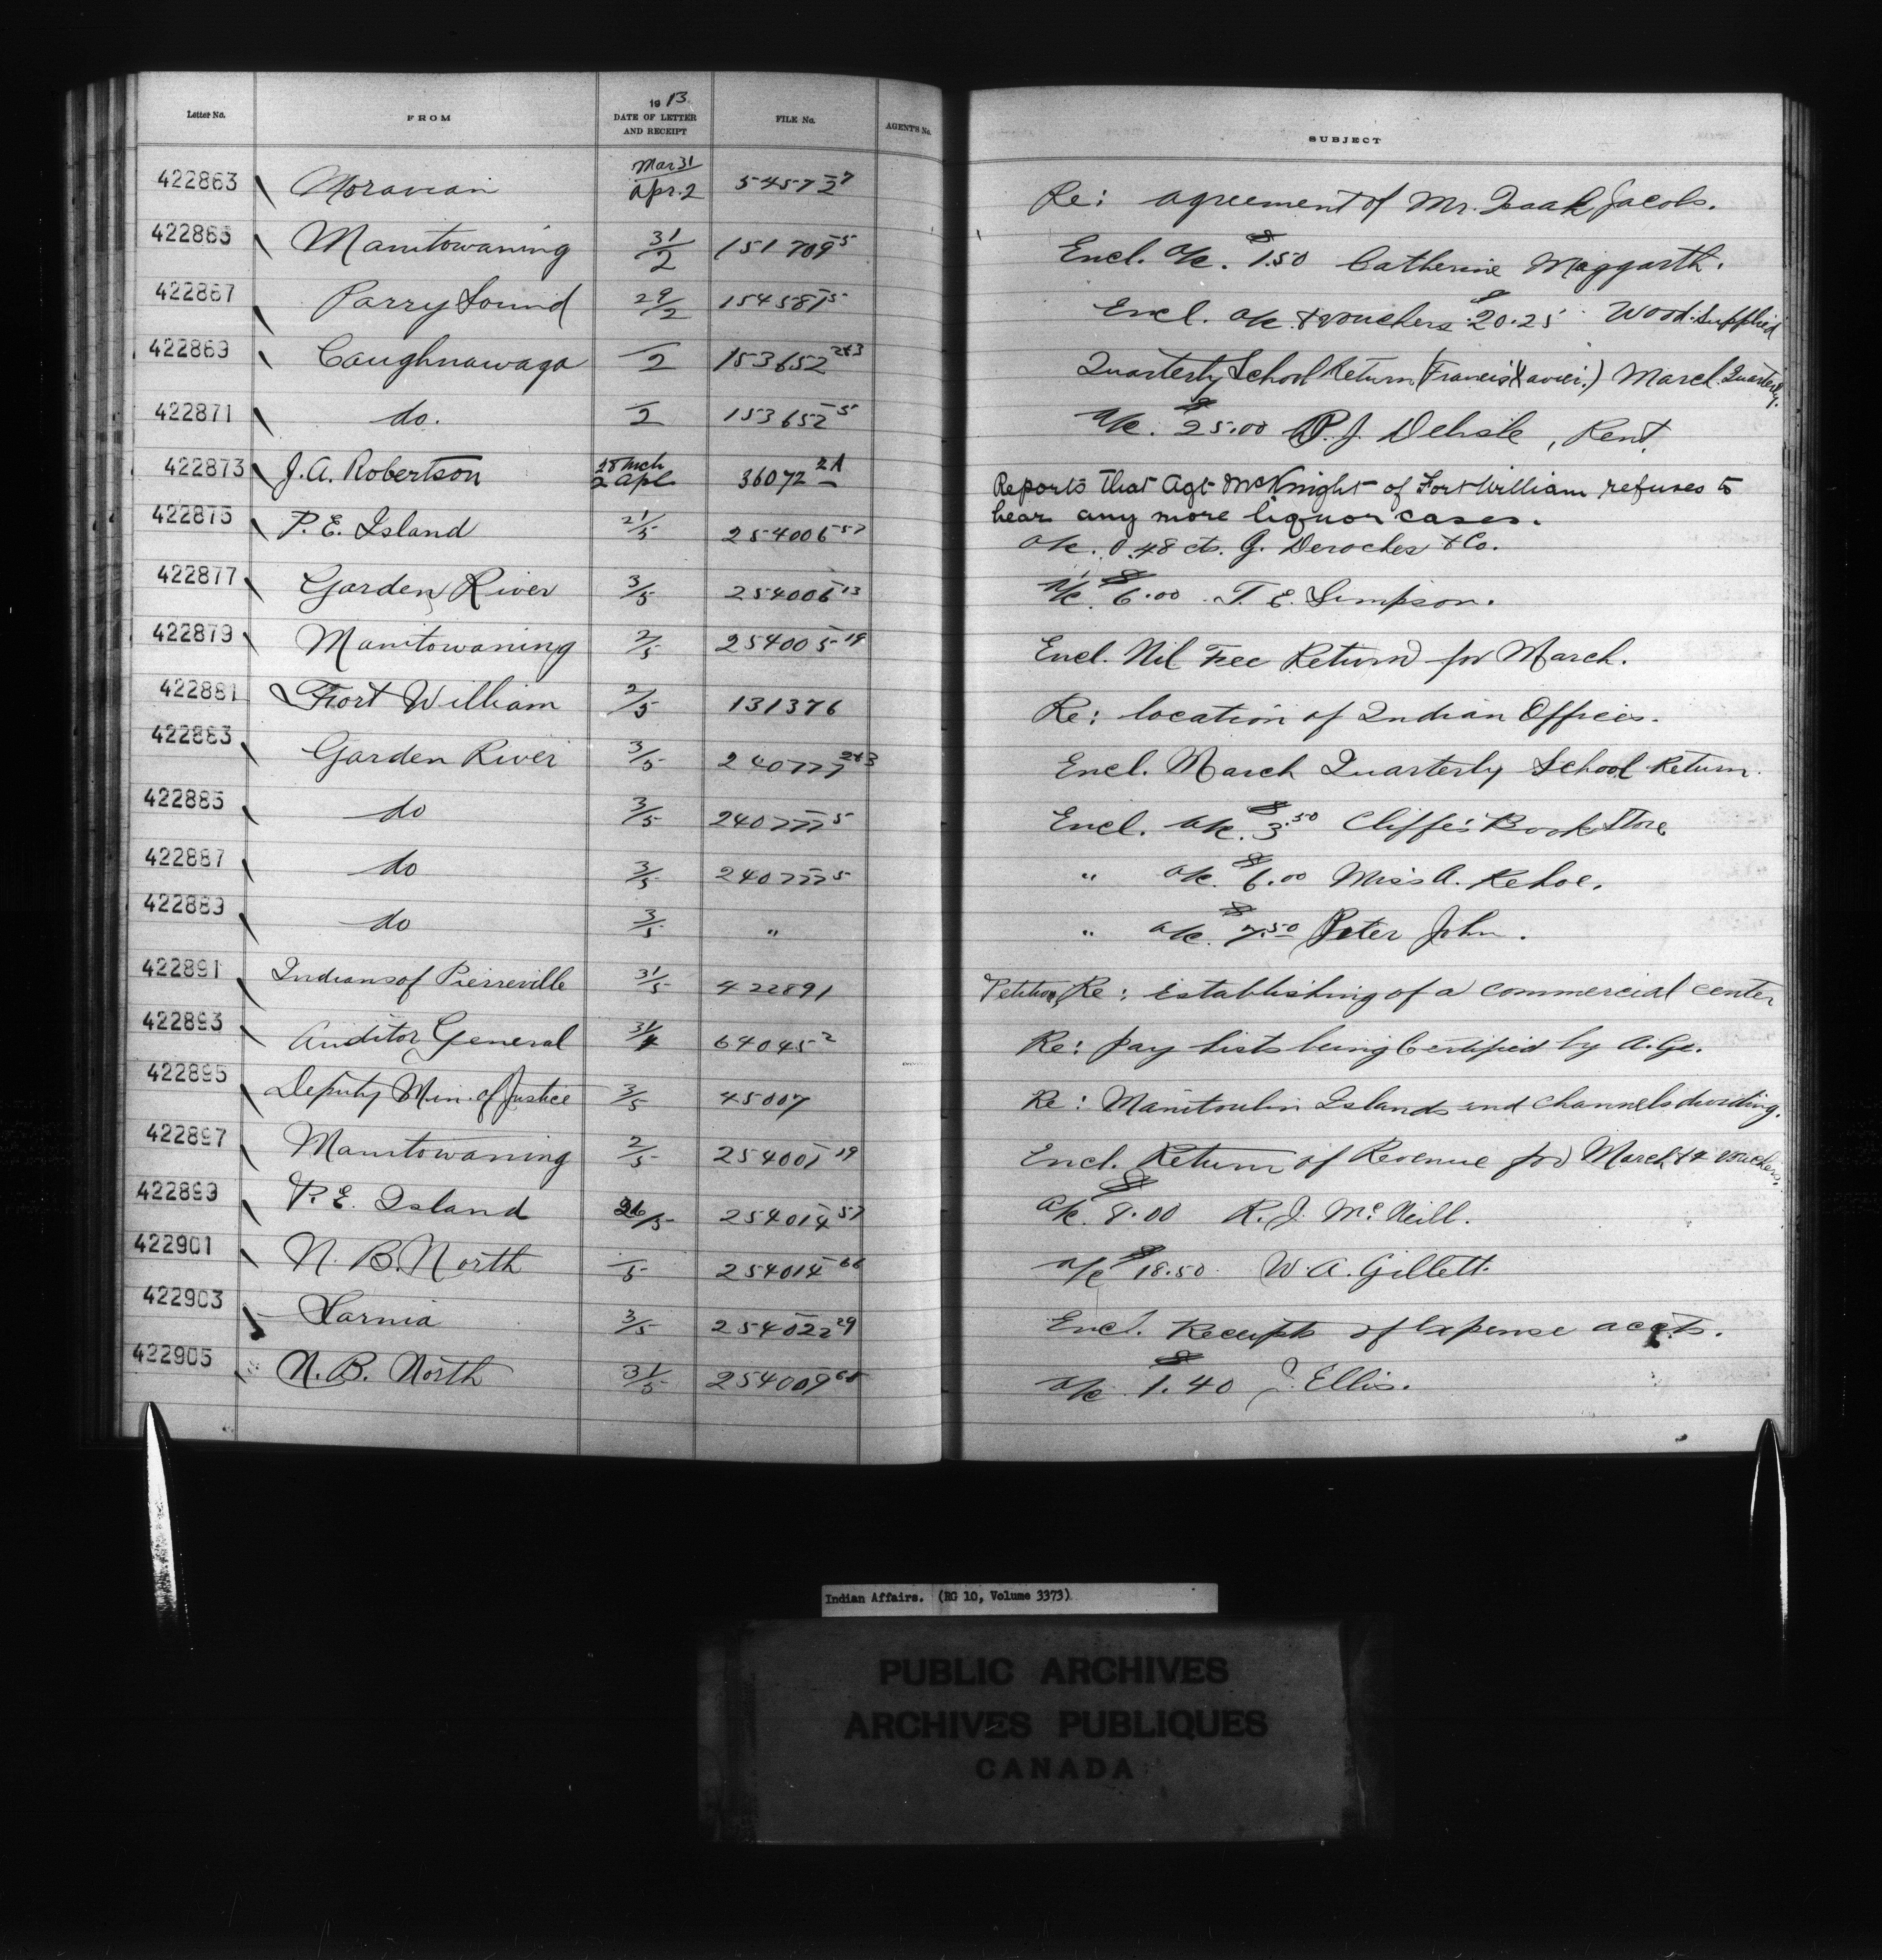 Letter No. FROM 1913 DATE OF LETTER AND RECEIPT FILE No. AGENT'S No. SUBJECT
422863 Moravian Mar 31 / Apr. 2 54572-7 Re: agreement of Mr. Isaak Jacobs.
422865 Manitowaning 31/2 151709-5 Encl. a/c. $1.50 Catherine Maggarth.
422867 Parry Sound 29/2 154581-5 Encl. a/c & vouchers $20.25 Wood supplied
422869 Caughnawaga —/2 153652-2&3 Quarterly School Return (Francis Xavier.) March Quarterly.
422871 do. —/2 153652-5 a/c. $25.00 P. J. Delisle, Rent.
422873 J. A. Robertson 28 Mch / 2 Apl 36072-2A Reports that Agt McKnight of Fort William refuses to
hear any more liquor cases.
422875 P. E. Island 21/5 254006-57 a/c. 0.48 cts. G. Deroches & Co.
422877 Garden River 3/5 254006-13 a/c. $6.00 T. E. Simpson.
422879 Manitowaning 2/5 254005-19 Encl. Nil Fee Return for March.
422881 Fort William 2/5 131376 Re: location of Indian Offices.
422883 Garden River 3/5 240777-2&3 Encl. March Quarterly School Return.
422885 do 3/5 240777-5 Encl. a/c. $3.50 Cliffe's Book Store
422887 do 3/5 240777-5 " a/c. $6.00 Miss A. Kehoe.
422889 do 3/5 " " a/c. $7.50 Peter John.
422891 Indians of Pierreville 31/5 422891 Petition Re: establishing of a commercial center
422893 Auditor General 31/4 64045-2 Re: pay lists being Certified by A. G.
422895 Deputy Min. of Justice 3/5 45007 Re: Manitoulin Islands and channels dividing.
422897 Manitowaning 2/5 254001-19 Encl. Return of Revenue for March & 4 vouchers.
422899 P. E. Island 26/5 254014-57 a/c. $8.00 R. J. McNeill.
422901 N. B. North —/5 254014-66 a/c $18.50 W. A. Gillett.
422903 Sarnia 3/5 254022-29 Encl. Receipts of Expense accts.
422905 N. B. North 31/5 254009 a/c $1.40 J. Ellis.
Indian Affairs. (RG 10, Volume 3373)
PUBLIC ARCHIVES
ARCHIVES PUBLIQUES
CANADA